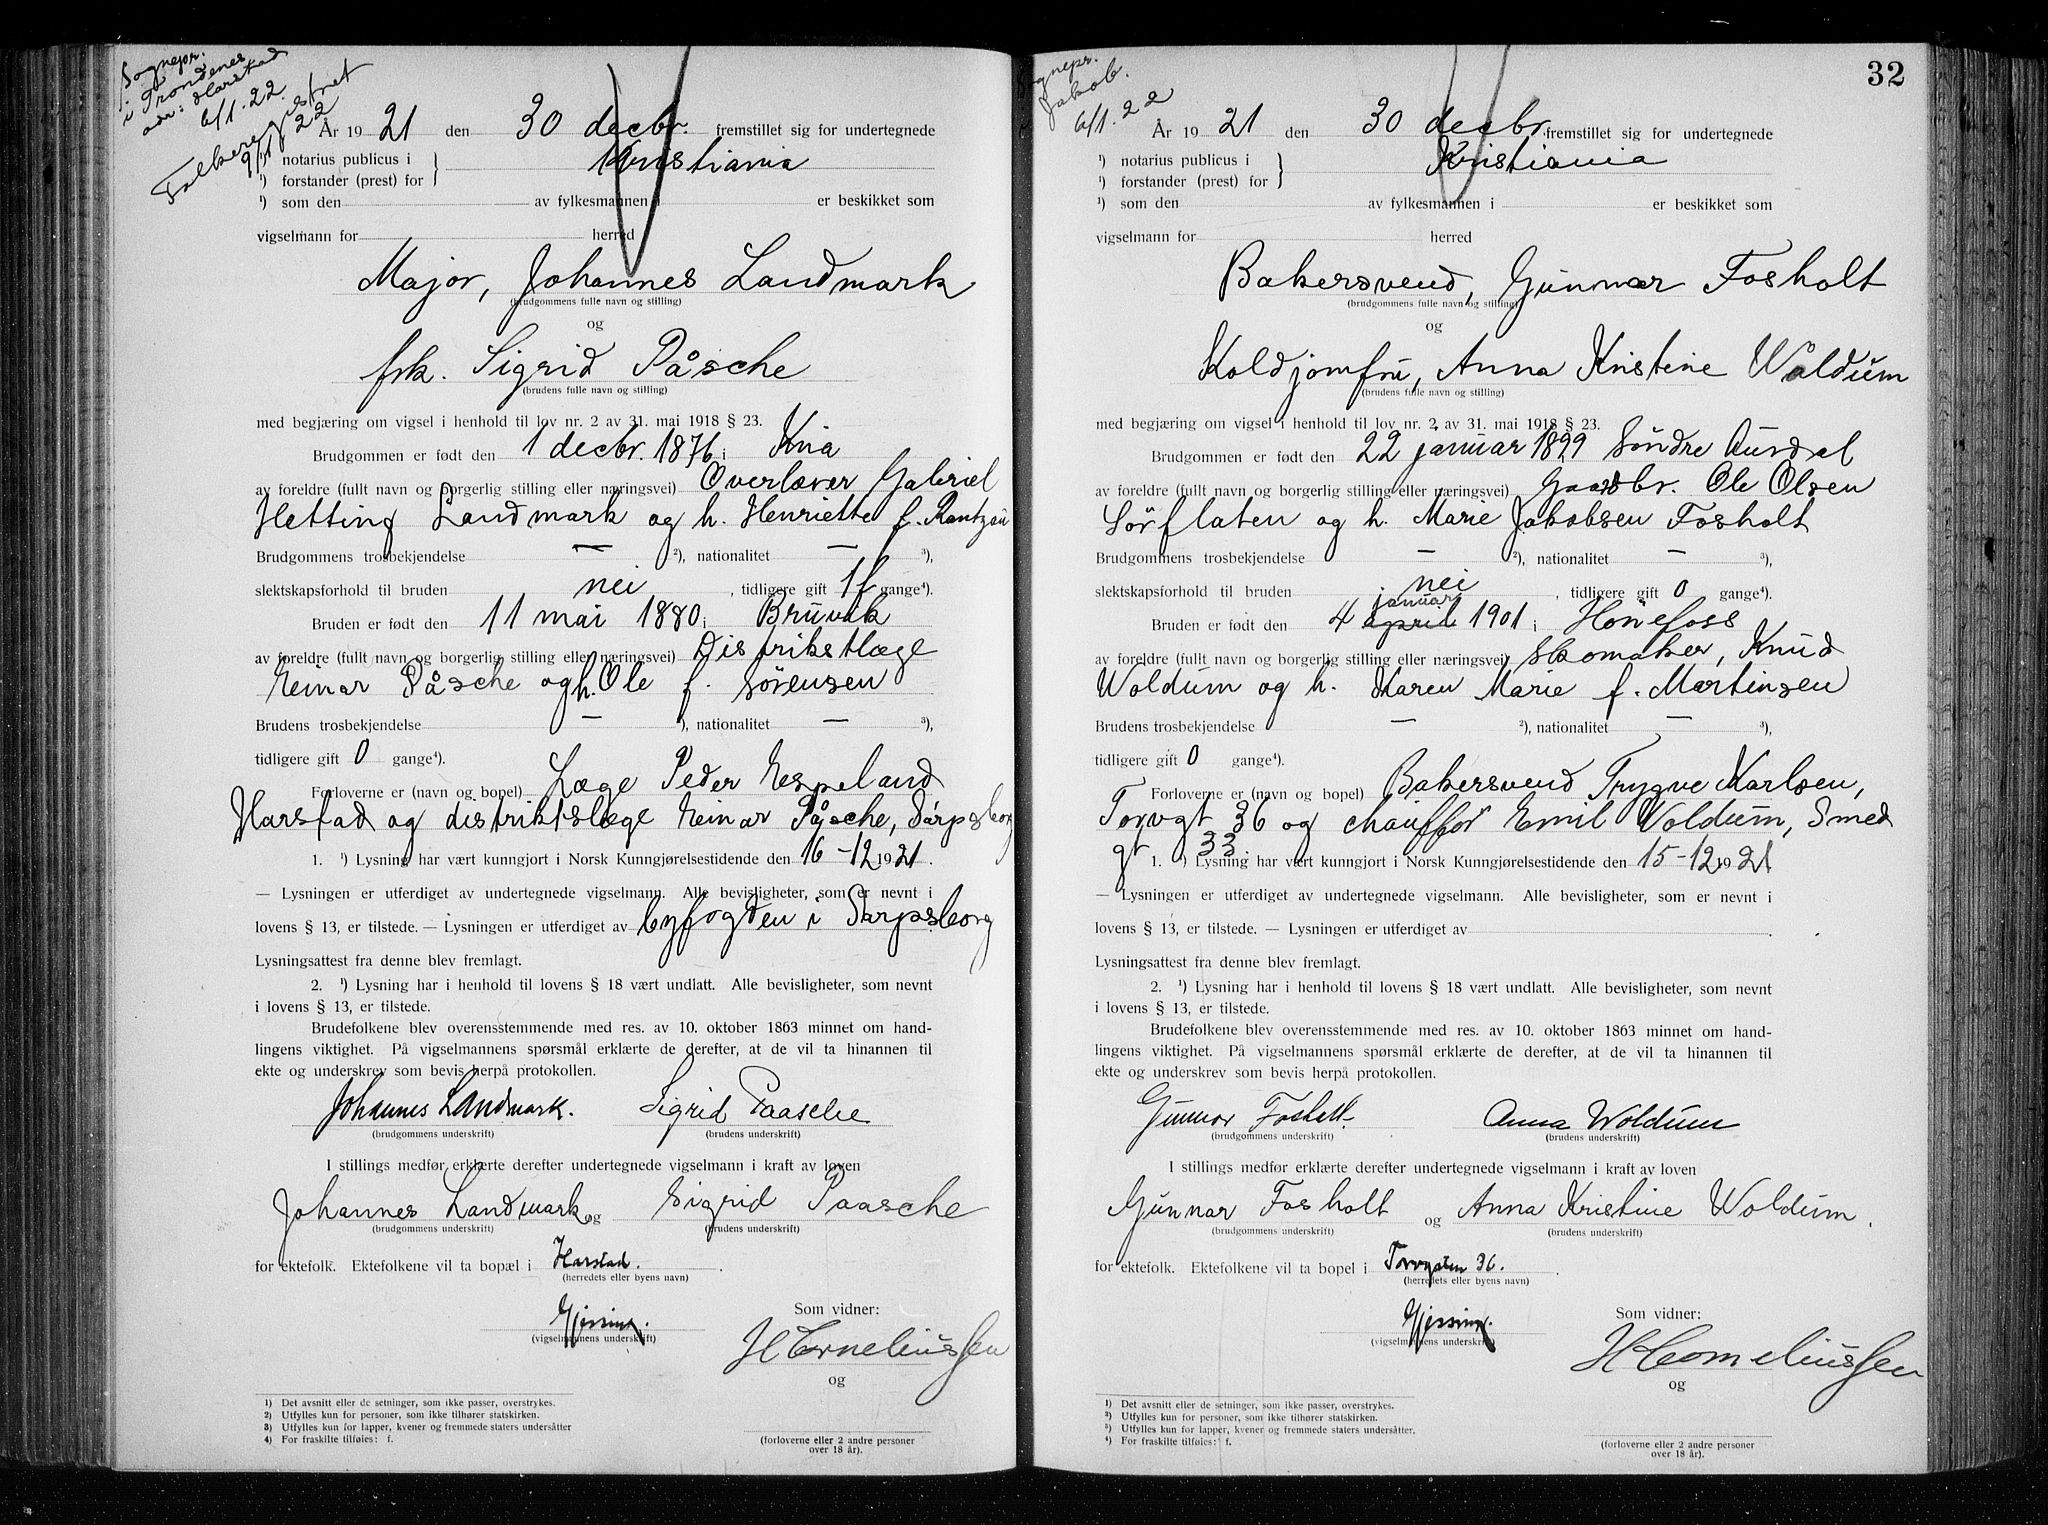 Sognepr.
i Trondenes
adr: Harstad
6/1.22.
Folkeregistret
9/1 22
År 1921 den 30 decbr. fremstillet sig for undertegnede
¹) notarius publicus i } Kristiania
¹) forstander (prest) for
¹) som den av fylkesmannen i er beskikket som
vigselmann for herred
Major, Johannes Landmark
(brudgommens fulle navn og stilling)
og
frk. Sigrid Påsche
(brudens fulle navn og stilling)
med begjæring om vigsel i henhold til lov nr. 2 av 31. mai 1918 § 23.
Brudgommen er født den 1 decbr. 1876 i Kria
av foreldre (fullt navn og borgerlig stilling eller næringsvei) Overlærer Gabriel
Hetting Landmark og h. Henriette f. Rantzau
Brudgommens trosbekjendelse — ²), nationalitet — ³),
slektskapsforhold til bruden nei, tidligere gift 1f gange⁴).
Bruden er født den 11 mai 1880 i Bruvik
av foreldre (fullt navn og borgerlig stilling eller næringsvei) Distrikstlæge
Einar Påsche og h. Ole f. Sørensen
Brudens trosbekjendelse — ²), nationalitet — ³),
tidligere gift 0 gange⁴).
Forloverne er (navn og bopel) Læge Peder Espeland
Harstad og distriktslæge Einar Påsche, Sarpsborg
1. ¹) Lysning har vært kunngjort i Norsk Kunngjørelsestidende den 16-12 1921.
— Lysningen er utferdiget av undertegnede vigselmann. Alle bevisligheter, som er nevnt i
lovens § 13, er tilstede. — Lysningen er utferdiget av byfogden i Sarpsborg
Lysningsattest fra denne blev fremlagt.
2. ¹) Lysning har i henhold til lovens § 18 vært undlatt. Alle bevisligheter, som nevnt
i lovens § 13, er tilstede.
Brudefolkene blev overensstemmende med res. av 10. oktober 1863 minnet om hand-
lingens viktighet. På vigselmannens spørsmål erklærte de derefter, at de vil ta hinannen til
ekte og underskrev som bevis herpå protokollen.
Johannes Landmark. Sigrid Paasche
(brudgommens underskrift) (brudens underskrift)
I stillings medfør erklærte derefter undertegnede vigselmann i kraft av loven
Johannes Landmark og Sigrid Paasche
(brudgommens underskrift) (brudens underskrift)
for ektefolk. Ektefolkene vil ta bopæl i Harstad.
(herredets eller byens navn)
Gjessing.
(vigselmannens underskrift)
Som vidner:
H Corneliussen
og
¹) Det avsnitt eller de setninger, som ikke passer, overstrykes.
²) Utfylles kun for personer, som ikke tilhører statskirken.
³) Utfylles kun for lapper, kvener og fremmede staters undersåtter
⁴) For fraskilte tilføies: f.
(forloverne eller 2 andre personer
over 18 år).
32
Sognepr.
Jakob.
6/1.22
År 1921 den 30 decbr. fremstillet sig for undertegnede
¹) notarius publicus i } Kristiania
¹) forstander (prest) for
¹) som den av fylkesmannen i er beskikket som
vigselmann for herred
Bakersvend, Gunnar Fosholt
(brudgommens fulle navn og stilling)
og
Koldjomfru, Anna Kristine Woldum
(brudens fulle navn og stilling)
med begjæring om vigsel i henhold til lov nr. 2 av 31. mai 1918 § 23.
Brudgommen er født den 22 januar 1899 Søndre Aurdal
av foreldre (fullt navn og borgerlig stilling eller næringsvei) Gaardbr. Ole Olsen
Sørflaten og h. Marie Jakobsen Fosholt
Brudgommens trosbekjendelse — ²), nationalitet — ³),
slektskapsforhold til bruden nei, tidligere gift 0 gange⁴).
januar
Bruden er født den 4 april 1901 i Hønefoss
av foreldre (fullt navn og borgerlig stilling eller næringsvei) Skomaker, Knud
Woldum og h. Karen Marie f. Martinsen
Brudens trosbekjendelse — ²), nationalitet — ³),
tidligere gift 0 gange⁴).
Forloverne er (navn og bopel) Bakersvend Trygve Karlsen,
Torvgt 36 og chauffør Emil Woldum, Smed
gt 33
1. ¹) Lysning har vært kunngjort i Norsk Kunngjørelsestidende den 15-12 1921
— Lysningen er utferdiget av undertegnede vigselmann. Alle bevisligheter, som er nevnt i
lovens § 13, er tilstede. — Lysningen er utferdiget av
Lysningsattest fra denne blev fremlagt.
2. ¹) Lysning har i henhold til lovens § 18 vært undlatt. Alle bevisligheter, som nevnt
i lovens § 13, er tilstede.
Brudefolkene blev overensstemmende med res. av 10. oktober 1863 minnet om hand-
lingens viktighet. På vigselmannens spørsmål erklærte de derefter, at de vil ta hinannen til
ekte og underskrev som bevis herpå protokollen.
Gunnar Fosholt. Anna Woldum
(brudgommens underskrift) (brudens underskrift)
I stillings medfør erklærte derefter undertegnede vigselmann i kraft av loven
Gunnar Fosholt og Anna Kristine Woldum.
(brudgommens underskrift) (brudens underskrift)
for ektefolk. Ektefolkene vil ta bopel i Torvgaten 36.
(herredets eller byens navn)
Gjessing.
(vigselmannens underskrift)
Som vidner:
H Corneliussen
og
¹) Det avsnitt eller de setninger, som ikke passer, overstrykes.
²) Utfylles kun for personer, som ikke tilhører statskirken.
³) Utfylles kun for lapper, kvener og fremmede staters undersåtter.
⁴) For fraskilte tilføies: f.
(forloverne eller 2 andre personer
over 18 år).